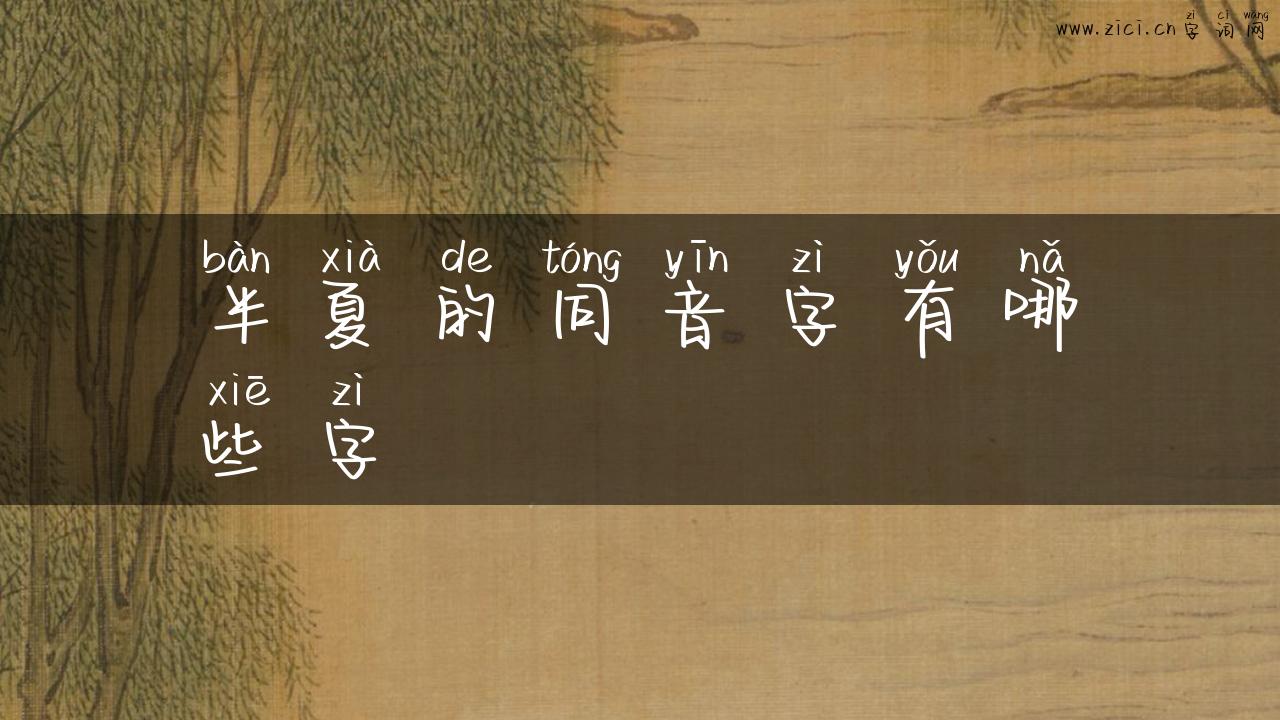 zì cí wǎng
www.zici.cn 字词网
bàn xià de tóng yīn zì yǒu nǎ
半夏的同音字有哪
xiē zì
些字